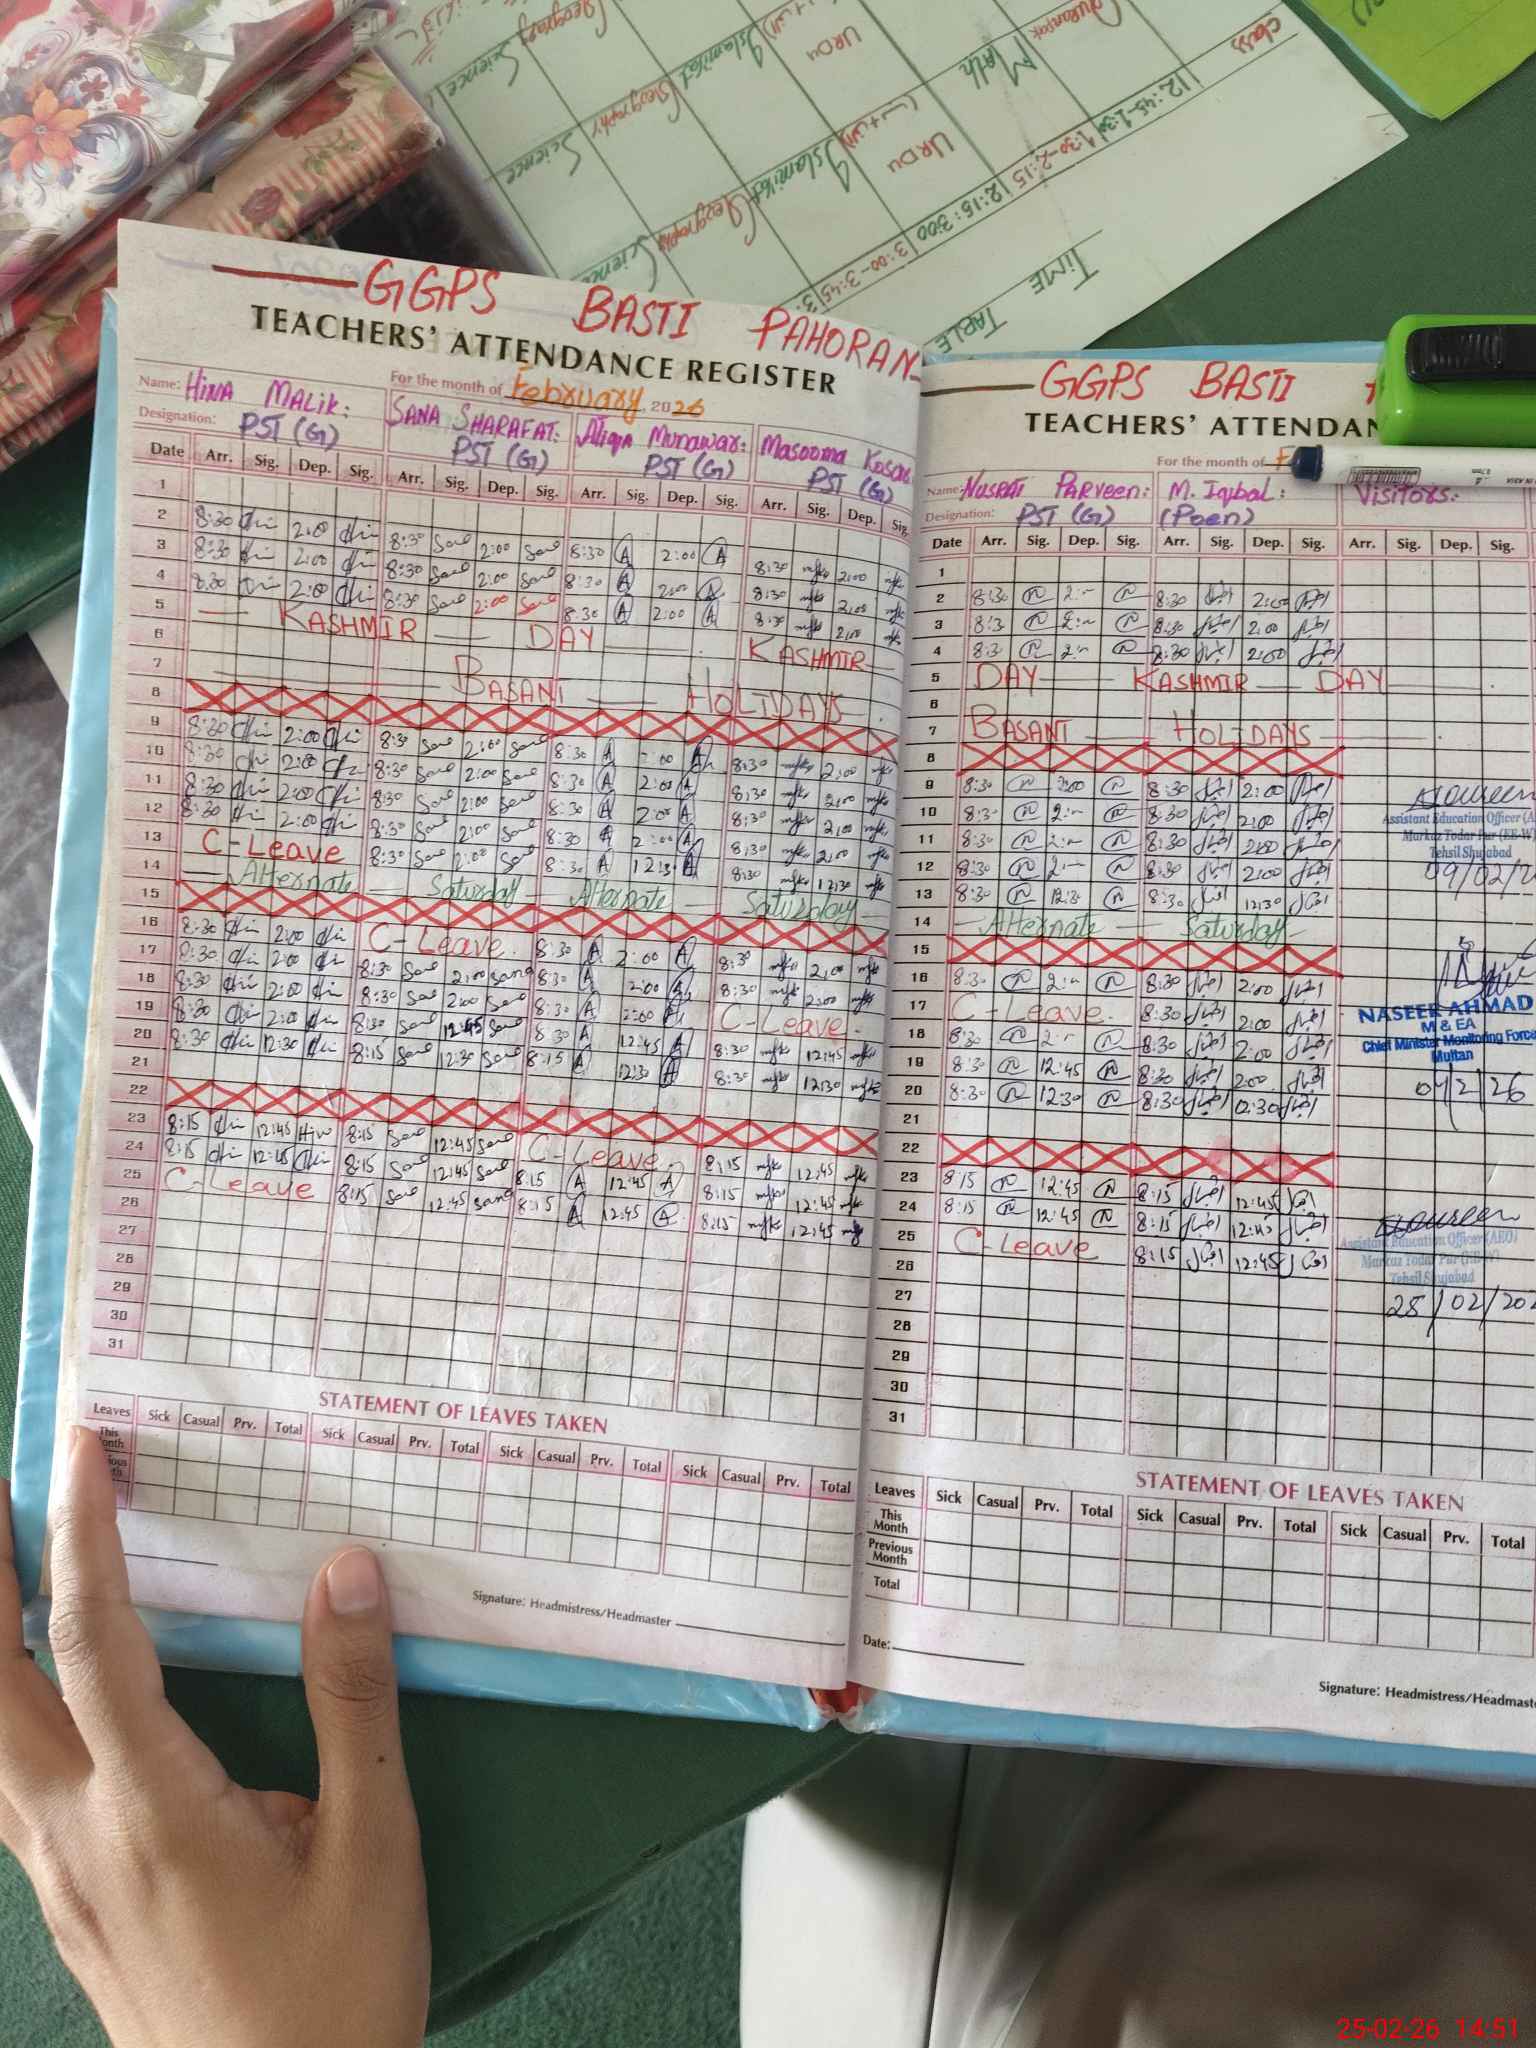 GGPS BASTI PAHORAN
TEACHERS' ATTENDANCE REGISTER
For the month of February, 2026
Name: HINA MALIK: SANA SHARAFAT: Atiqa Munawar: Masooma
Designation: PST (G) PST (G) PST (G) PST (G)
Date Arr. Sig. Dep. Sig. Arr. Sig. Dep. Sig. Arr. Sig. Dep. Sig. Arr. Sig. Dep. Sig.
1
2 8:30 2:00 8:30 Sana 2:00 Sana 8:30 A 2:00 A 8:30 2:00
3 8:30 2:00 8:30 Sana 2:00 Sana 8:30 A 2:00 A 8:30 2:00
4 8:30 2:00 8:30 Sana 2:00 Sana 8:30 A 2:00 A 8:30 2:00
5 KASHMIR DAY KASHMIR
6
7 BASANT HOLIDAYS
8
9 8:30 2:00 8:30 Sana 2:00 Sana 8:30 A 2:00 A 8:30 2:00
10 8:30 2:00 8:30 Sana 2:00 Sana 8:30 A 2:00 A 8:30 2:00
11 8:30 2:00 8:30 Sana 2:00 Sana 8:30 A 2:00 A 8:30 2:00
12 8:30 2:00 8:30 Sana 2:00 Sana 8:30 A 2:00 A 8:30 2:00
13 C-Leave 8:30 Sana 2:00 Sana 8:30 A 12:30 A 8:30 12:30
14 Alternate Saturday Alternate Saturday
15
16 8:30 2:00 C-Leave. 8:30 A 2:00 A 8:30 2:00
17 8:30 2:00 8:30 Sana 2:00 Sana 8:30 A 2:00 A 8:30 2:00
18 8:30 2:00 8:30 Sana 2:00 Sana 8:30 A 2:00 A C-Leave.
19 8:30 2:00 8:30 Sana 12:45 Sana 8:30 A 12:45 A 8:30 12:45
20 8:30 12:30 8:15 Sana 12:30 Sana 8:15 A 12:30 A 8:30 12:30
21
22
23 8:15 12:45 8:15 Sana 12:45 Sana C-Leave. 8:15 12:45
24 8:15 12:45 8:15 Sana 12:45 Sana 8:15 A 12:45 A 8:15 12:45
25 C-Leave 8:15 Sana 12:45 Sana 8:15 A 12:45 A 8:15 12:45
26
27
28
29
30
31
STATEMENT OF LEAVES TAKEN
Leaves Sick Casual Prv. Total Sick Casual Prv. Total Sick Casual Prv. Total Sick Casual Prv. Total
This
Signature: Headmistress/Headmaster
GGPS BASTI
TEACHERS' ATTENDAN
For the month of F
Name: NUSRAT PARVEEN: M. Iqbal: Visitors:
Designation: PST (G) (Poen)
Date Arr. Sig. Dep. Sig. Arr. Sig. Dep. Sig. Arr. Sig. Dep. Sig.
1
2 8:30 N 2: N 8:30 اقبال 2:00 اقبال
3 8:3 N 2: N 8:30 اقبال 2:00 اقبال
4 8:3 N 2: N 8:30 اقبال 2:00 اقبال
5 DAY KASHMIR DAY
6
7 BASANT HOLIDAYS
8
9 8:30 N 2:00 N 8:30 اقبال 2:00 اقبال
10 8:3 N 2: N 8:30 اقبال 2:00 اقبال
11 8:3 N 2: N 8:30 اقبال 2:00 اقبال
12 8:30 N 2: N 8:30 اقبال 2:00 اقبال
13 8:30 N 12:3 N 8:30 اقبال 12:30 اقبال
14 Alternate Saturday
15
16 8:3 N 2: N 8:30 اقبال 2:00 اقبال
17 C-Leave. 8:30 اقبال 2:00 اقبال
18 8:30 N 2: N 8:30 اقبال 2:00 اقبال
19 8:30 N 12:45 N 8:30 اقبال 2:00 اقبال
20 8:30 N 12:30 N 8:30 اقبال 12:30 اقبال
21
22
23 8:15 N 12:45 N 8:15 اقبال 12:45 اقبال
24 8:15 N 12:45 N 8:15 اقبال 12:45 اقبال
25 C-Leave 8:15 اقبال 12:45 اقبال
26
27
28
29
30
31
Assistant Education Officer (A
Markaz Todar Pur (EE-W)
Tehsil Shujabad
09/02/2
NASEER AHMAD
M & EA
Chief Minister Monitoring Force
Multan
Assistant Education Officer (AEO)
Markaz Todar Pur
Tehsil Shujabad
/02/202
STATEMENT OF LEAVES TAKEN
Leaves Sick Casual Prv. Total Sick Casual Prv. Total Sick Casual Prv. Total
This Month
Previous Month
Total
Date:
Signature: Headmistress/Headmast
TIME TABLE
class 12:45-1:30 1:30-2:15 2:15-3:00 3:00-3:45
Math URDU Islamiat Geography Science
URDU Islamiat Geography Science
25-02-26 14:51